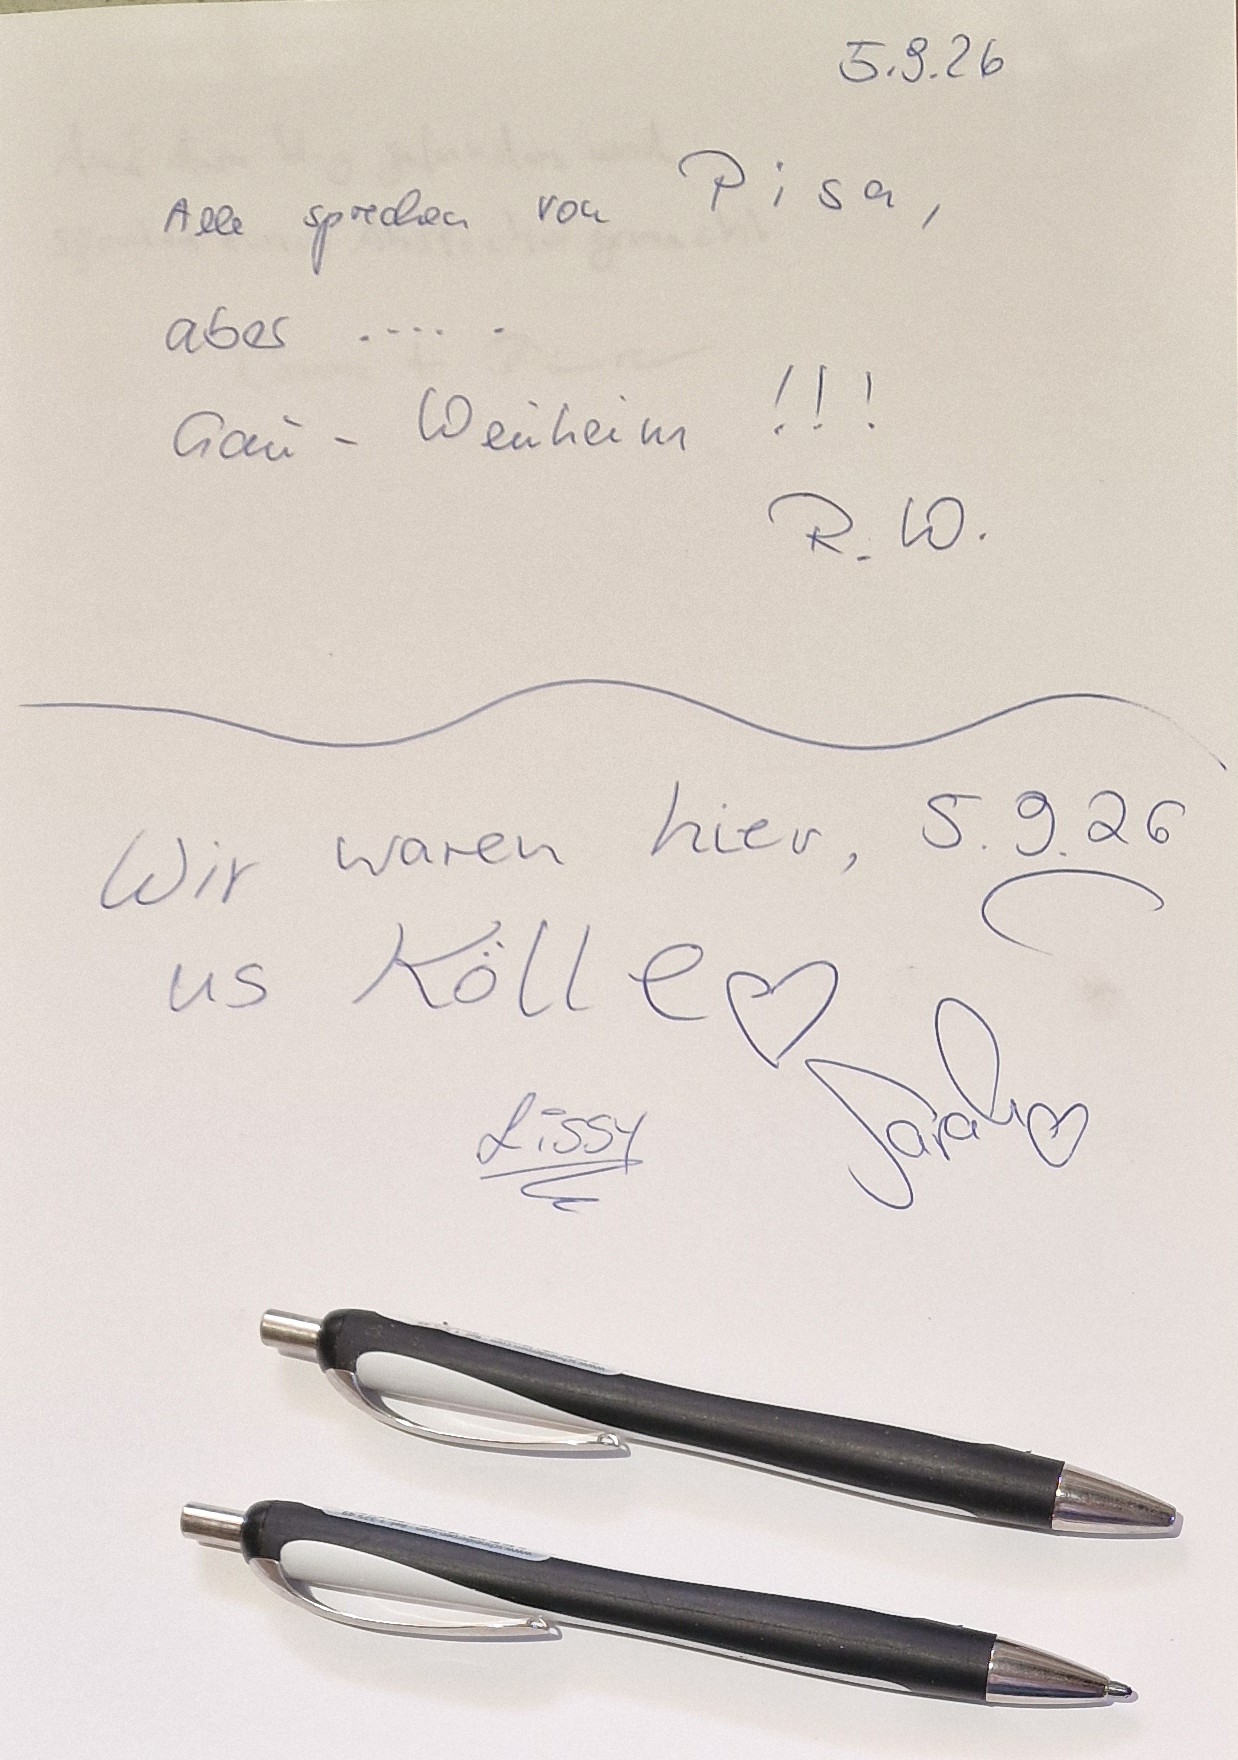 5.9.26
Alle sprechen von Pisa,
aber .....
Gau - Weinheim !!!
R. W.
Wir waren hier, 5.9.26
us Kölle ♡
Lissy
Sarah ♡